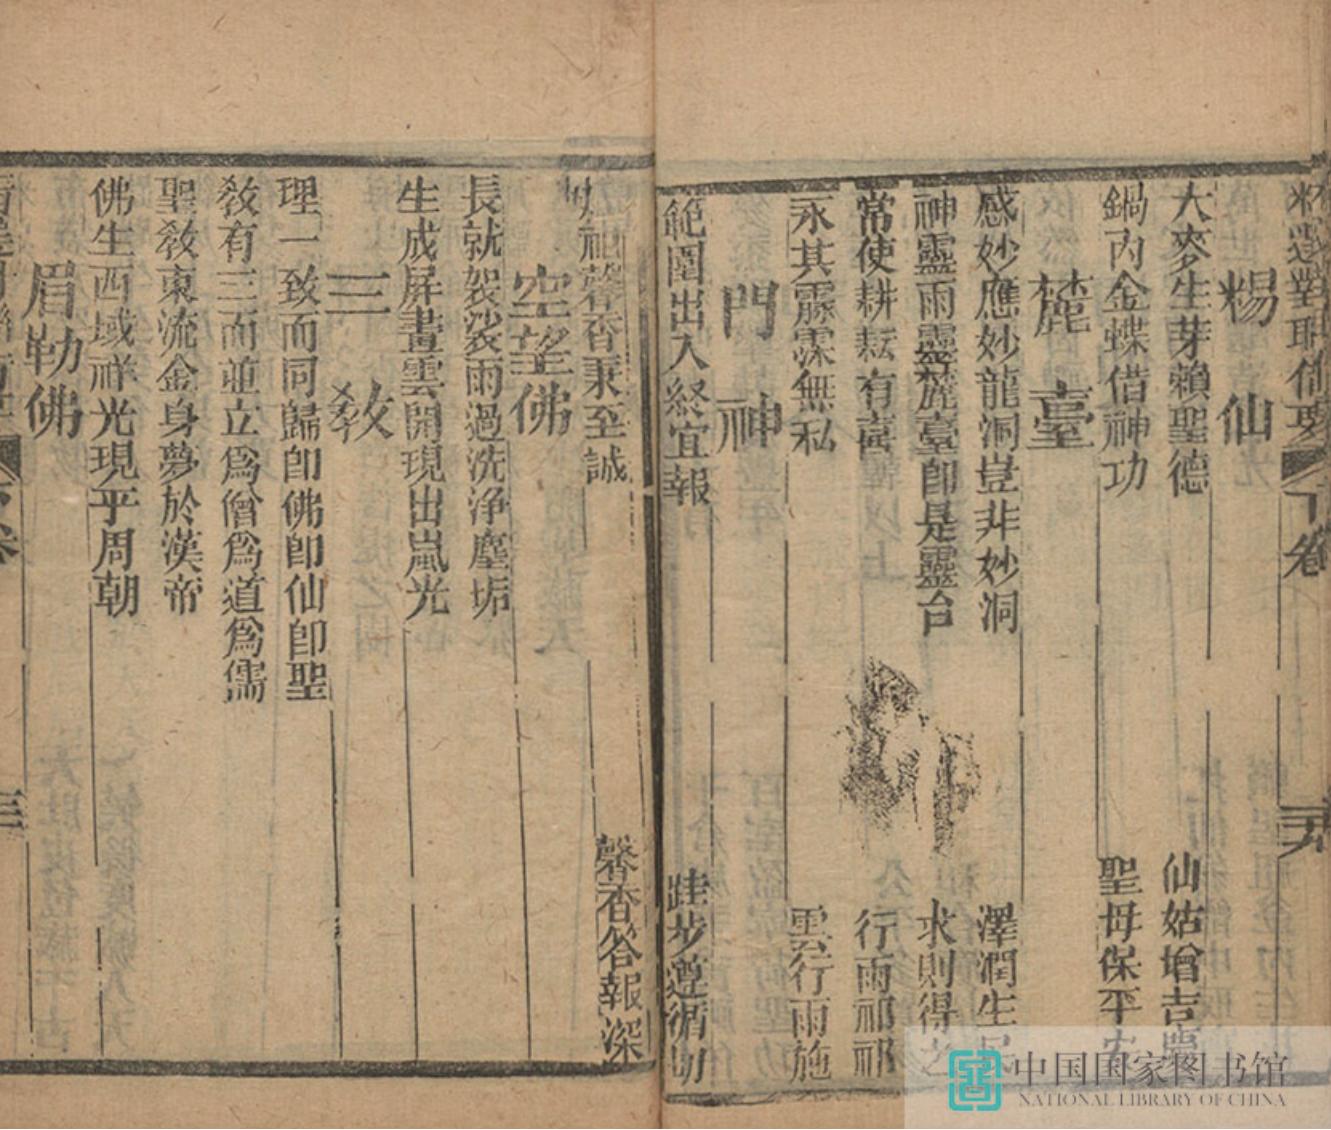 下卷
楊仙
大麥生芽賴聖德
仙姑增吉慶
鍋內金蝶借神功
聖母保平安
龍臺
感妙應妙龍洞豈非妙洞
澤潤生民
神靈雨靈龍臺卽是靈台
求則得之
常使耕耘有喜
行雨祁祁
永其霡霂無私
雲行雨施
門神
範圍出入終宜報
跬步遵循切
祖馨香秉至誠
馨香答報深
空望佛
長就袈裟雨過洗浄塵垢
生成屏畫雲開現出嵐光
三敎
理一致而同歸卽佛卽仙卽聖
敎有三而並立爲僧爲道爲儒
聖敎東流金身夢於漢帝
佛生西域祥光現乎周朝
眉勒佛
三
中国国家图书馆
NATIONAL LIBRARY OF CHINA